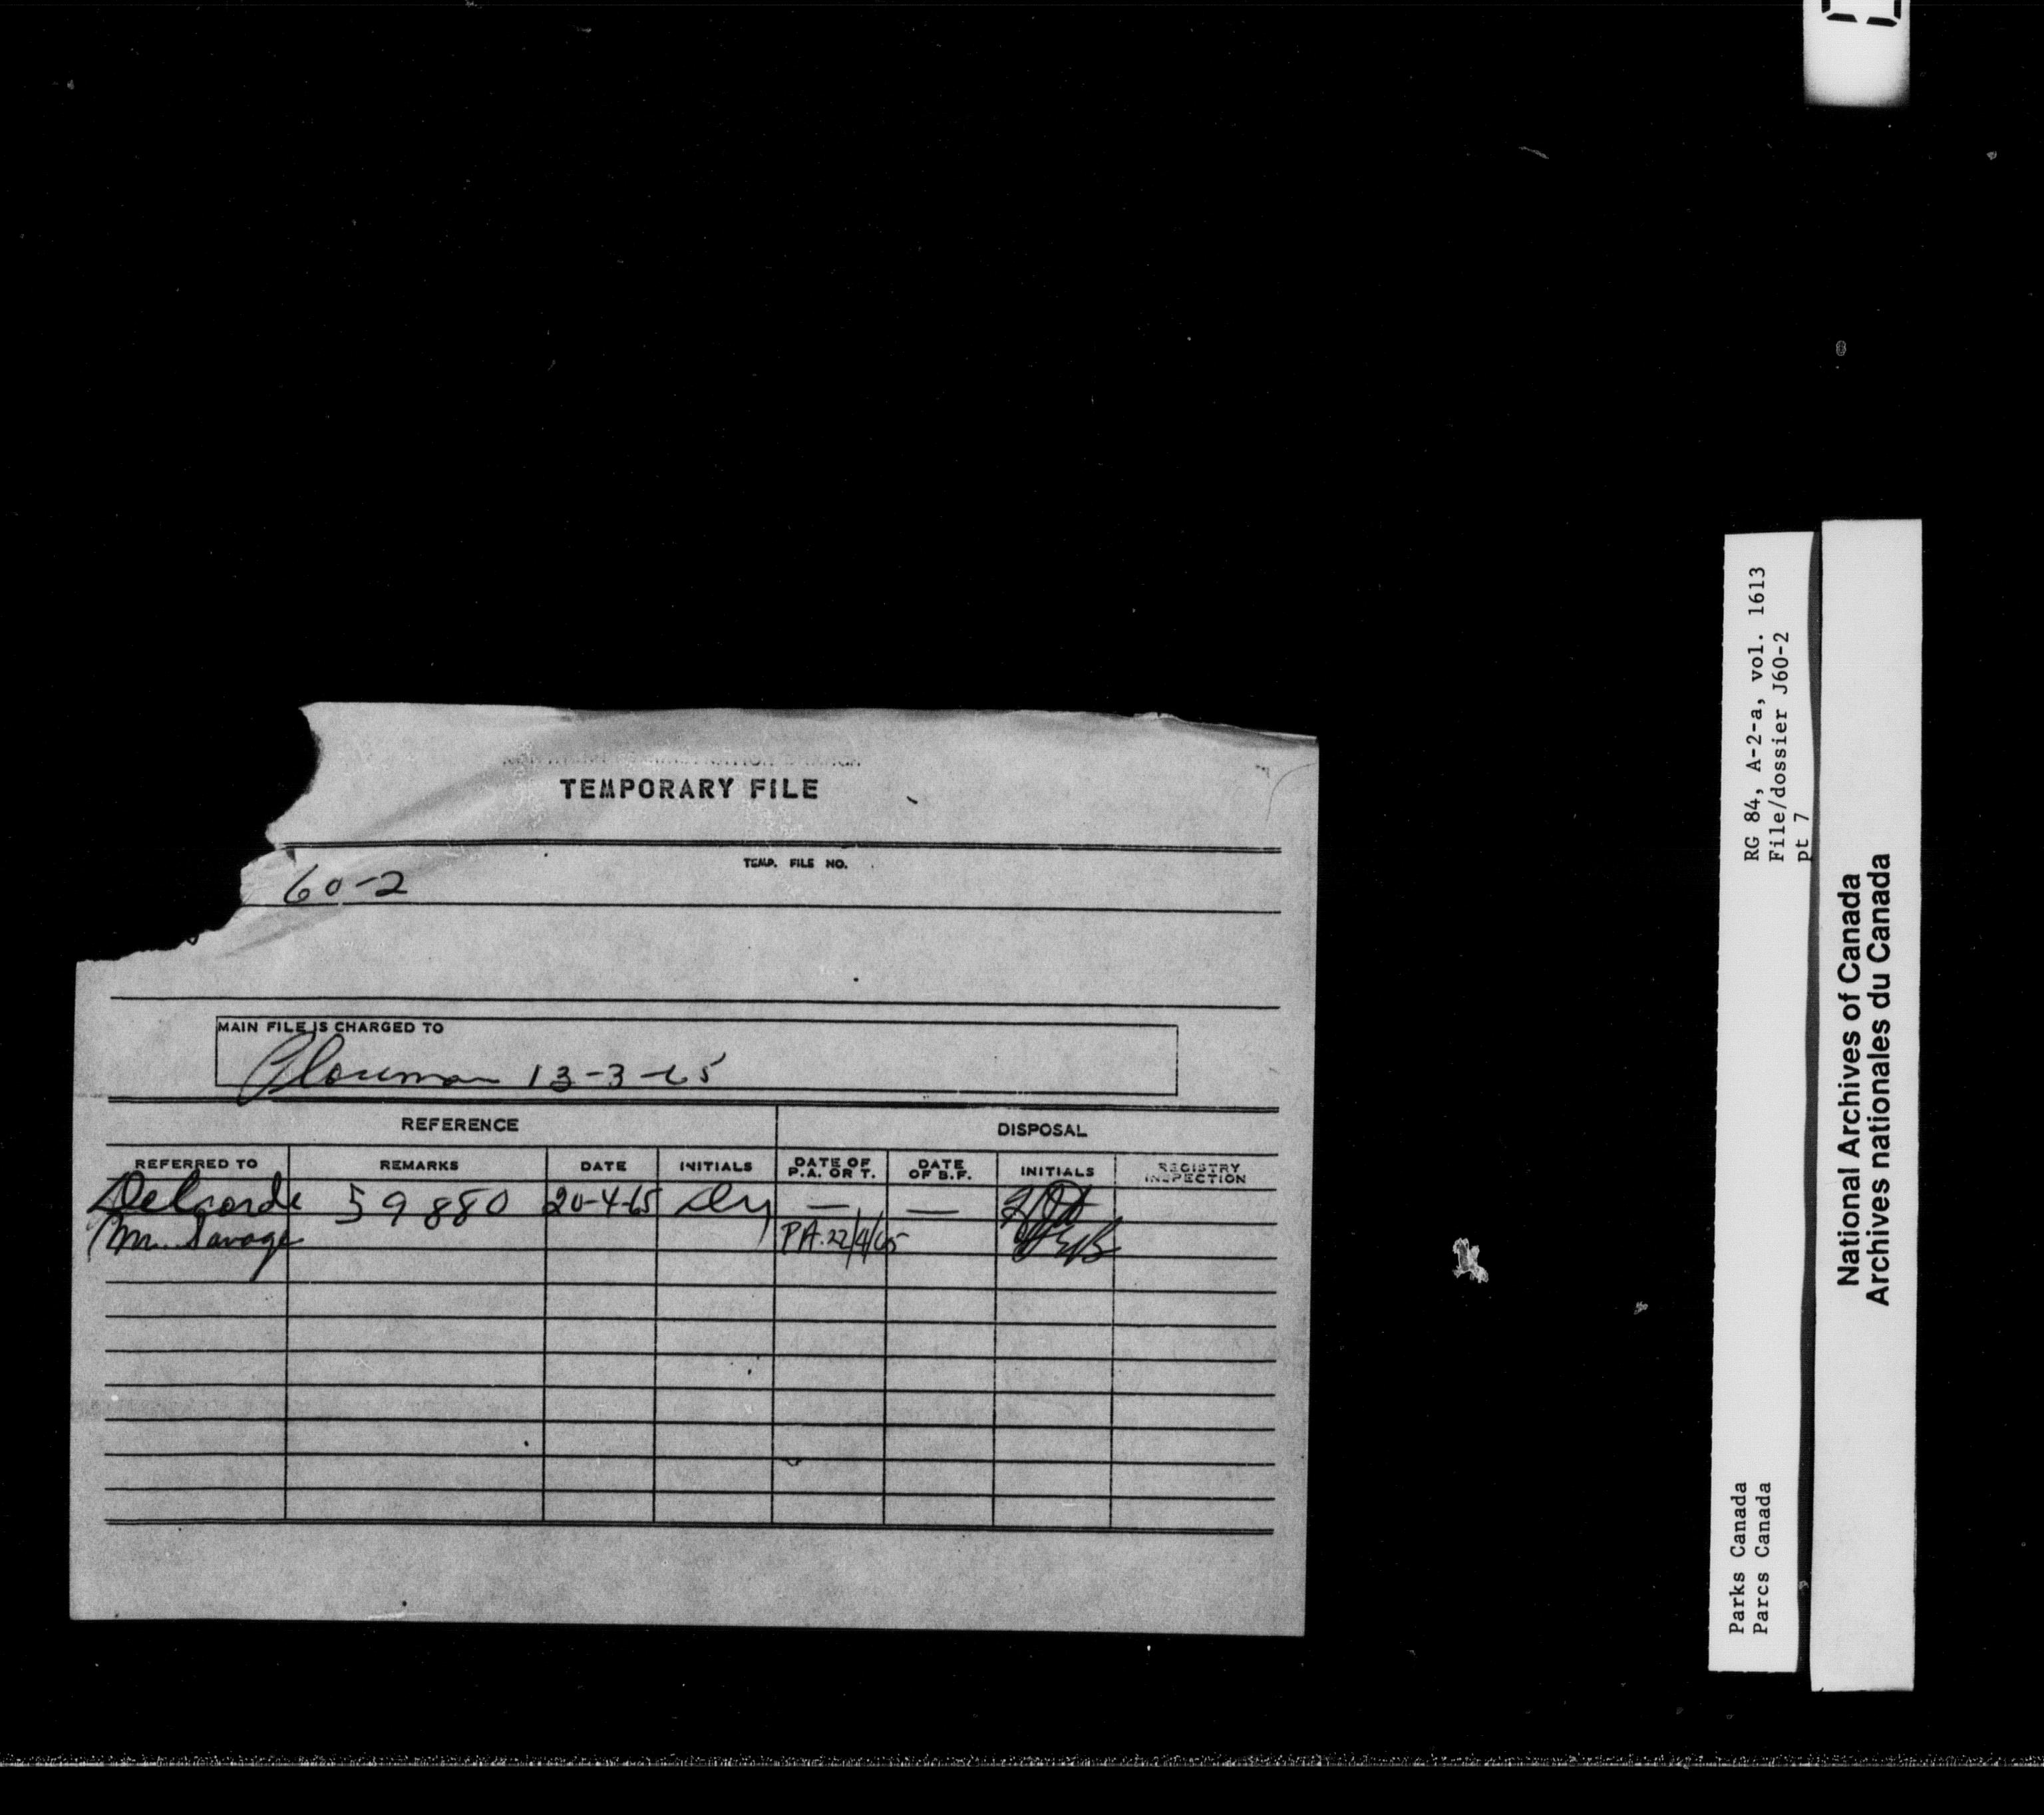 TEMPORARY FILE
TEMP. FILE NO.
60-2
MAIN FILE IS CHARGED TO
13-3-65
REFERENCE DISPOSAL
REFERRED TO REMARKS DATE INITIALS DATE OF P.A. OR T. DATE OF B.F. INITIALS REGISTRY INSPECTION
59880 20-4-65 — —
Mr. Savage PA. 22/4/65
RG 84, A-2-a, vol. 1613
File/dossier J60-2
pt 7
Parks Canada
Parcs Canada
National Archives of Canada
Archives nationales du Canada